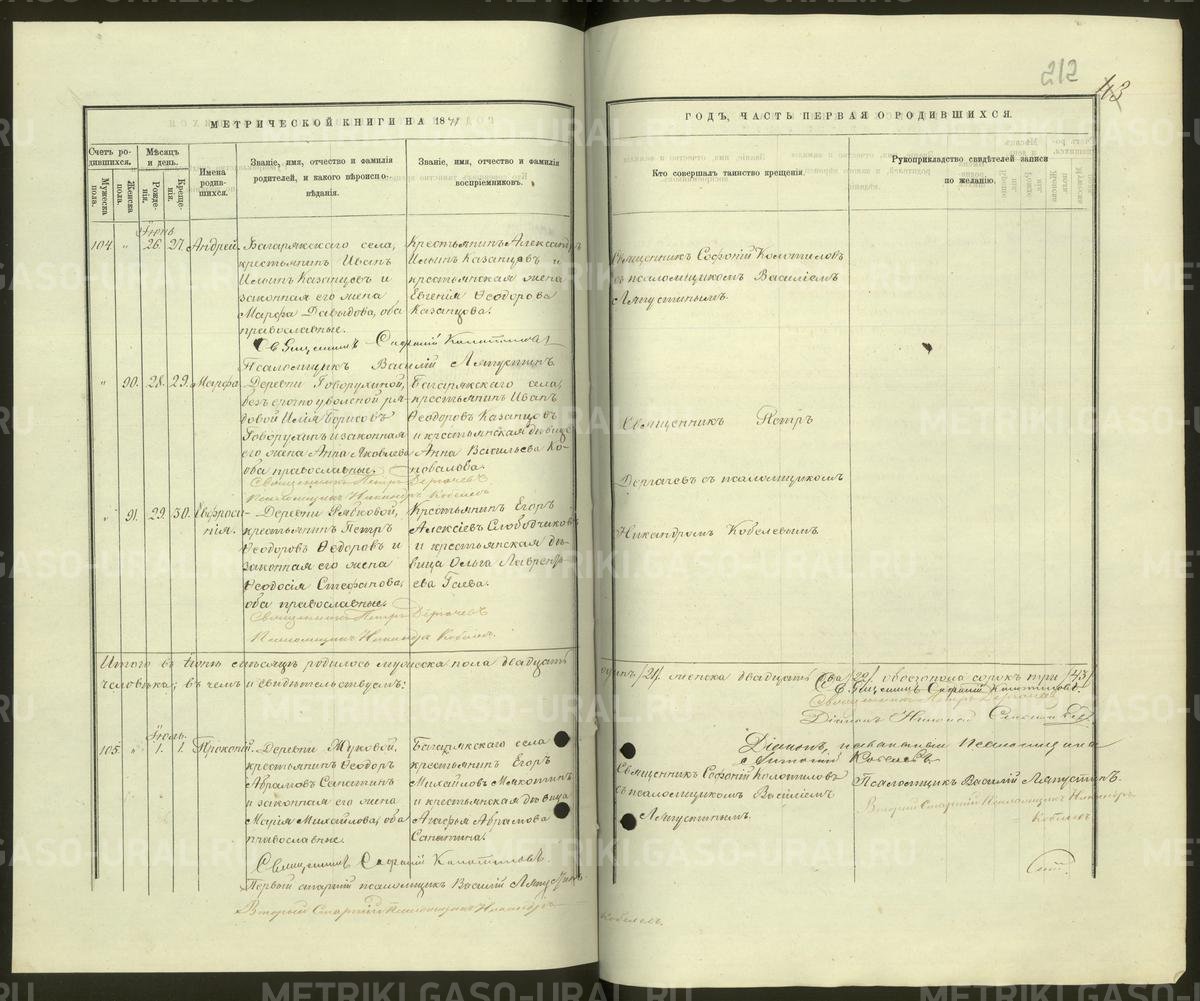 212
43
МЕТРИЧЕСКОЙ КНИГИ НА 1871
ГОДЪ, ЧАСТЬ ПЕРВАЯ О РОДИВШИХСЯ.
Счетъ родившихся.
Мужеска пола.
Женска пола.
Мѣсяцъ и день.
Рожденія.
Крещенія.
Имена родившихся.
Званіе, имя, отчество и фамилія
родителей, и какого вѣроисповѣданія.
Званіе, имя, отчество и фамилія
воспріемниковъ.
Кто совершалъ таинство крещенія.
Рукоприкладство свидѣтелей записи
по желанію.
Іюнь
104 " 26. 27. Андрей.
Багарякскаго села,
крестьянинъ Иванъ
Ильинъ Казанцовъ и
законная его жена
Марфа Давыдова, оба
православные.
Крестьянинъ Александръ
Ильинъ Казанцовъ и
крестьянская жена
Евгенія Ѳеодорова
Казанцова.
Священникъ Софоній Колотиловъ
съ псаломщикомъ Василіемъ
Ляпустинымъ.
Священникъ Софоній Колотиловъ
Псаломщикъ Василій Ляпустинъ
" 90. 28. 29. Марфа
Деревни Говорухиной,
безсрочноуволеной рядовой
Илія Борисовъ
Говорухинъ и законная
его жена Анна Яковлева
оба православные.
Багарякскаго села,
крестьянинъ Иванъ
Ѳеодоровъ Казанцовъ
и крестьянская дѣвица
Анна Васильева Коновалова.
Священникъ Петръ
Дергачевъ съ псаломщикомъ
Никандромъ Кобелевымъ.
Священникъ Петръ Дергачевъ
Псаломщикъ Никандръ Кобелевъ
" 91. 29. 30. Евфросинія.
Деревни Рябковой,
крестьянинъ Петръ
Ѳеодоровъ Ѳедоровъ и
законная его жена
Ѳеодосія Стефанова,
оба православные.
Крестьянинъ Егоръ
Алексіевъ Слободчиковъ
и крестьянская дѣвица
Ольга Лаврентьева
Гаева.
Священникъ Петръ Дергачевъ
Псаломщикъ Никандръ Кобелевъ.
Итого въ Іюнѣ мѣсяцѣ родилось мужеска пола двадцать
одинъ /21/ женска двадцать два /22/. обоего пола сорокъ три /43/
человѣка; въ чемъ и свидѣтельствуемъ:
Священникъ Софоній Колотиловъ.
Священникъ Петръ Дергачевъ
Діаконъ
Псаломщикъ Василій Ляпустинъ.
Вторый Старшій Псаломщикъ Никандръ
Кобелевъ
Іюль.
105. " 1. 1. Прокопій.
Деревни Жуковой,
крестьянинъ Ѳеодоръ
Абрамовъ Сапатинъ
и законная его жена
Марія Михайлова, оба
православные.
Багарякскаго села
крестьянинъ Егоръ
Михайловъ Мякотинъ
и крестьянская дѣвица
Агафья Абрамова
Сапатина.
Священникъ Софоній Колотиловъ
съ псаломщикомъ Василіемъ
Ляпустинымъ.
Священникъ Софоній Колотиловъ.
Первый старшій псаломщикъ Василій Ляпустинъ
Вторый Старшій Псаломщикъ Никандръ
Кобелевъ.
METRIKI.GASO-URAL.RU